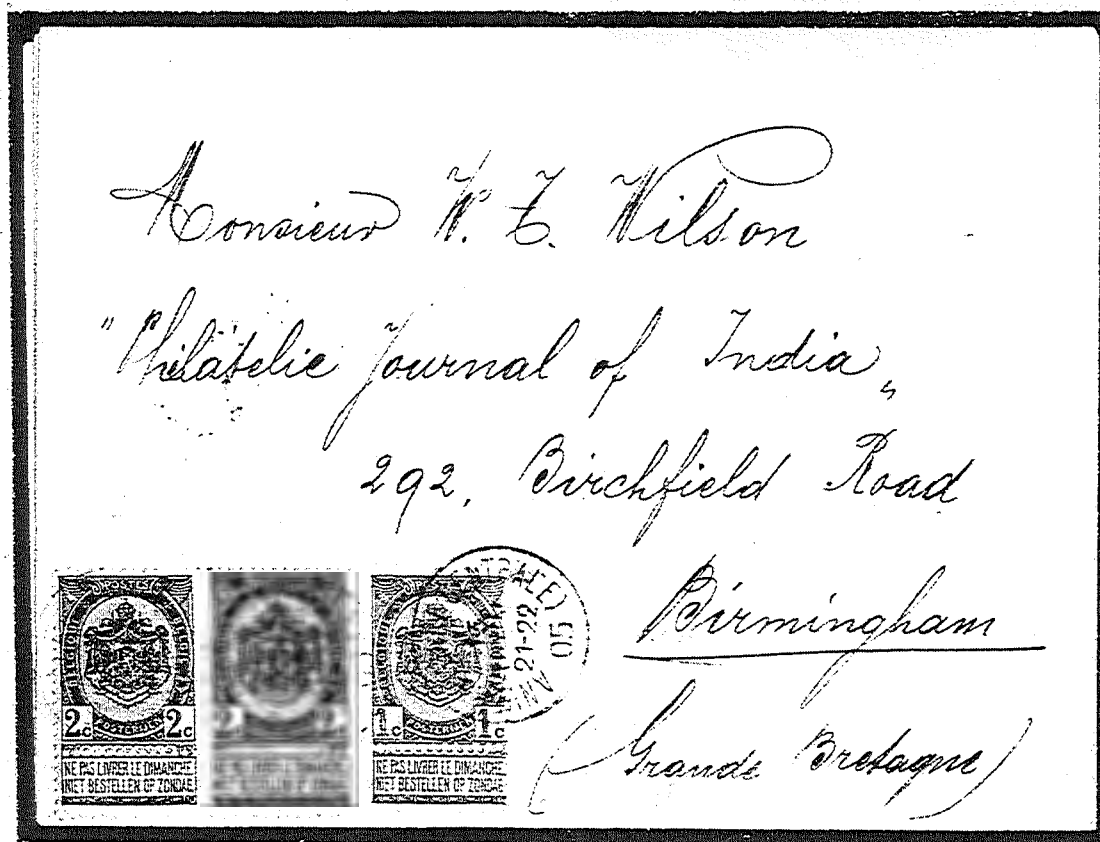 Monsieur W. T. Wilson
"Philatelic Journal of India„
292, Birchfield Road
Birmingham
(Grande Bretagne)
POSTES
BELGIQUE
2c 2c
POSTERIJEN
NE PAS LIVRER LE DIMANCHE
NIET BESTELLEN OP ZONDAG
2 2
1c 1c
NE PAS LIVRER LE DIMANCHE
NIET BESTELLEN OP ZONDAG
21-22
05